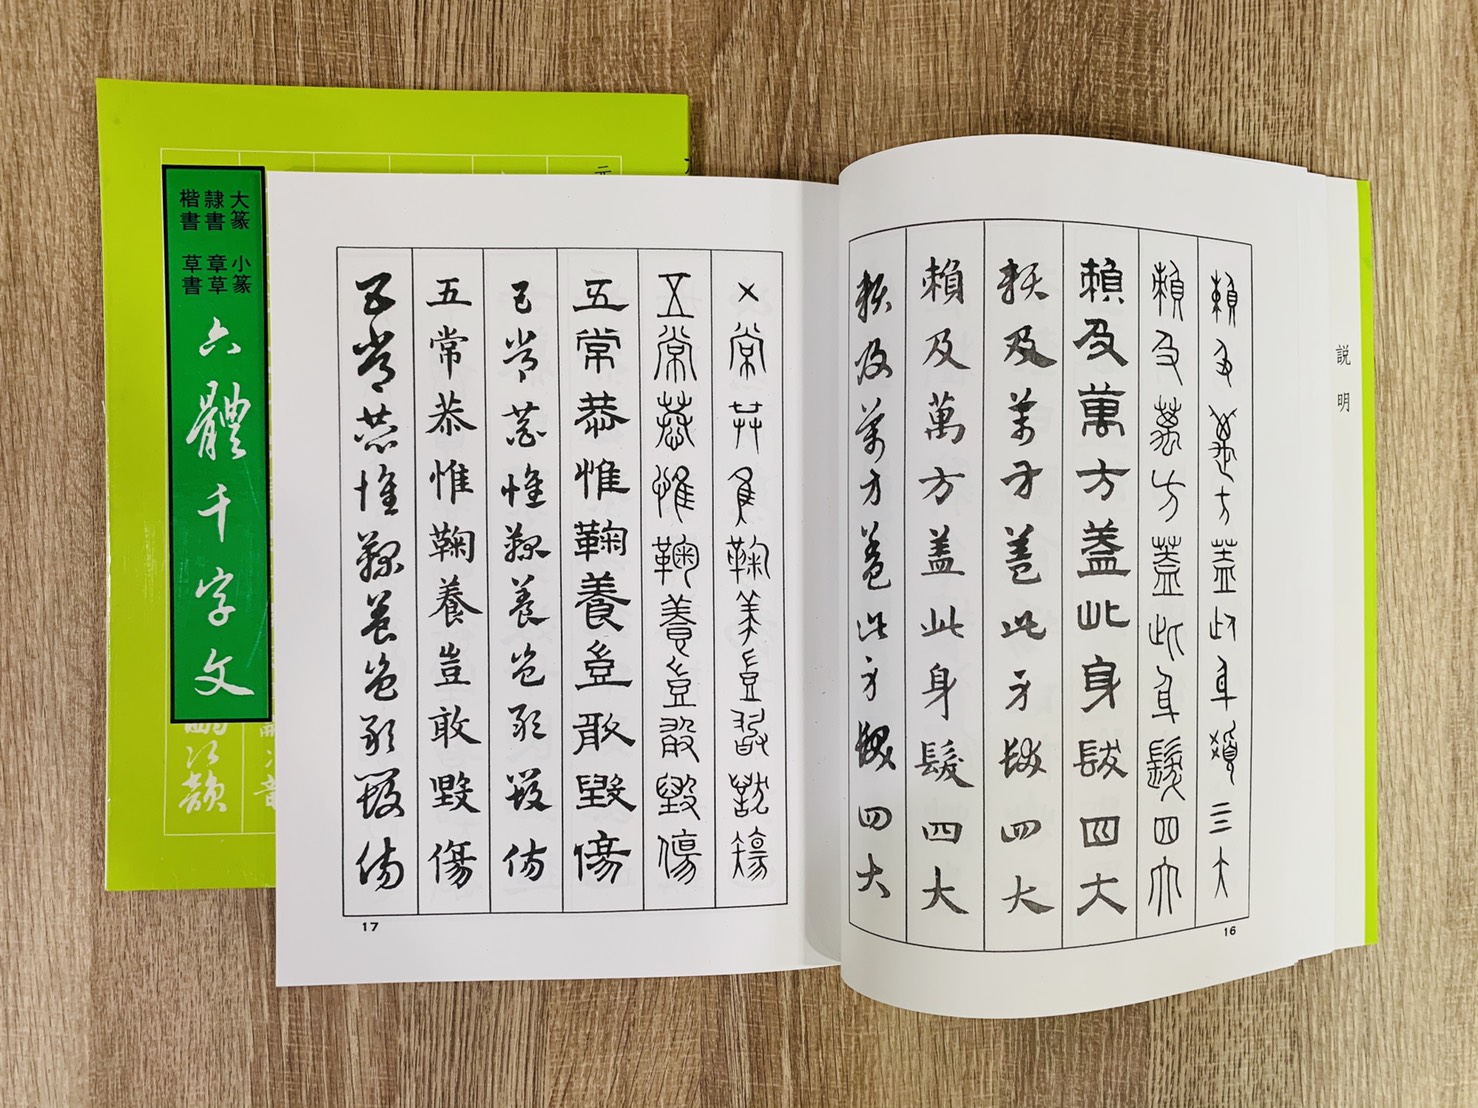 大篆 小篆
隸書 章草
楷書 草書
六體千字文
説明
賴及萬方蓋此身髮四大
賴及萬方蓋此身髮四大
賴及萬方蓋此身髮四大
賴及萬方蓋此身髮四大
賴及萬方蓋此身髮四大
賴及萬方蓋此身髮四大
16
五常恭惟鞠養豈敢毀傷
五常恭惟鞠養豈敢毀傷
五常恭惟鞠養豈敢毀傷
五常恭惟鞠養豈敢毀傷
五常恭惟鞠養豈敢毀傷
五常恭惟鞠養豈敢毀傷
17